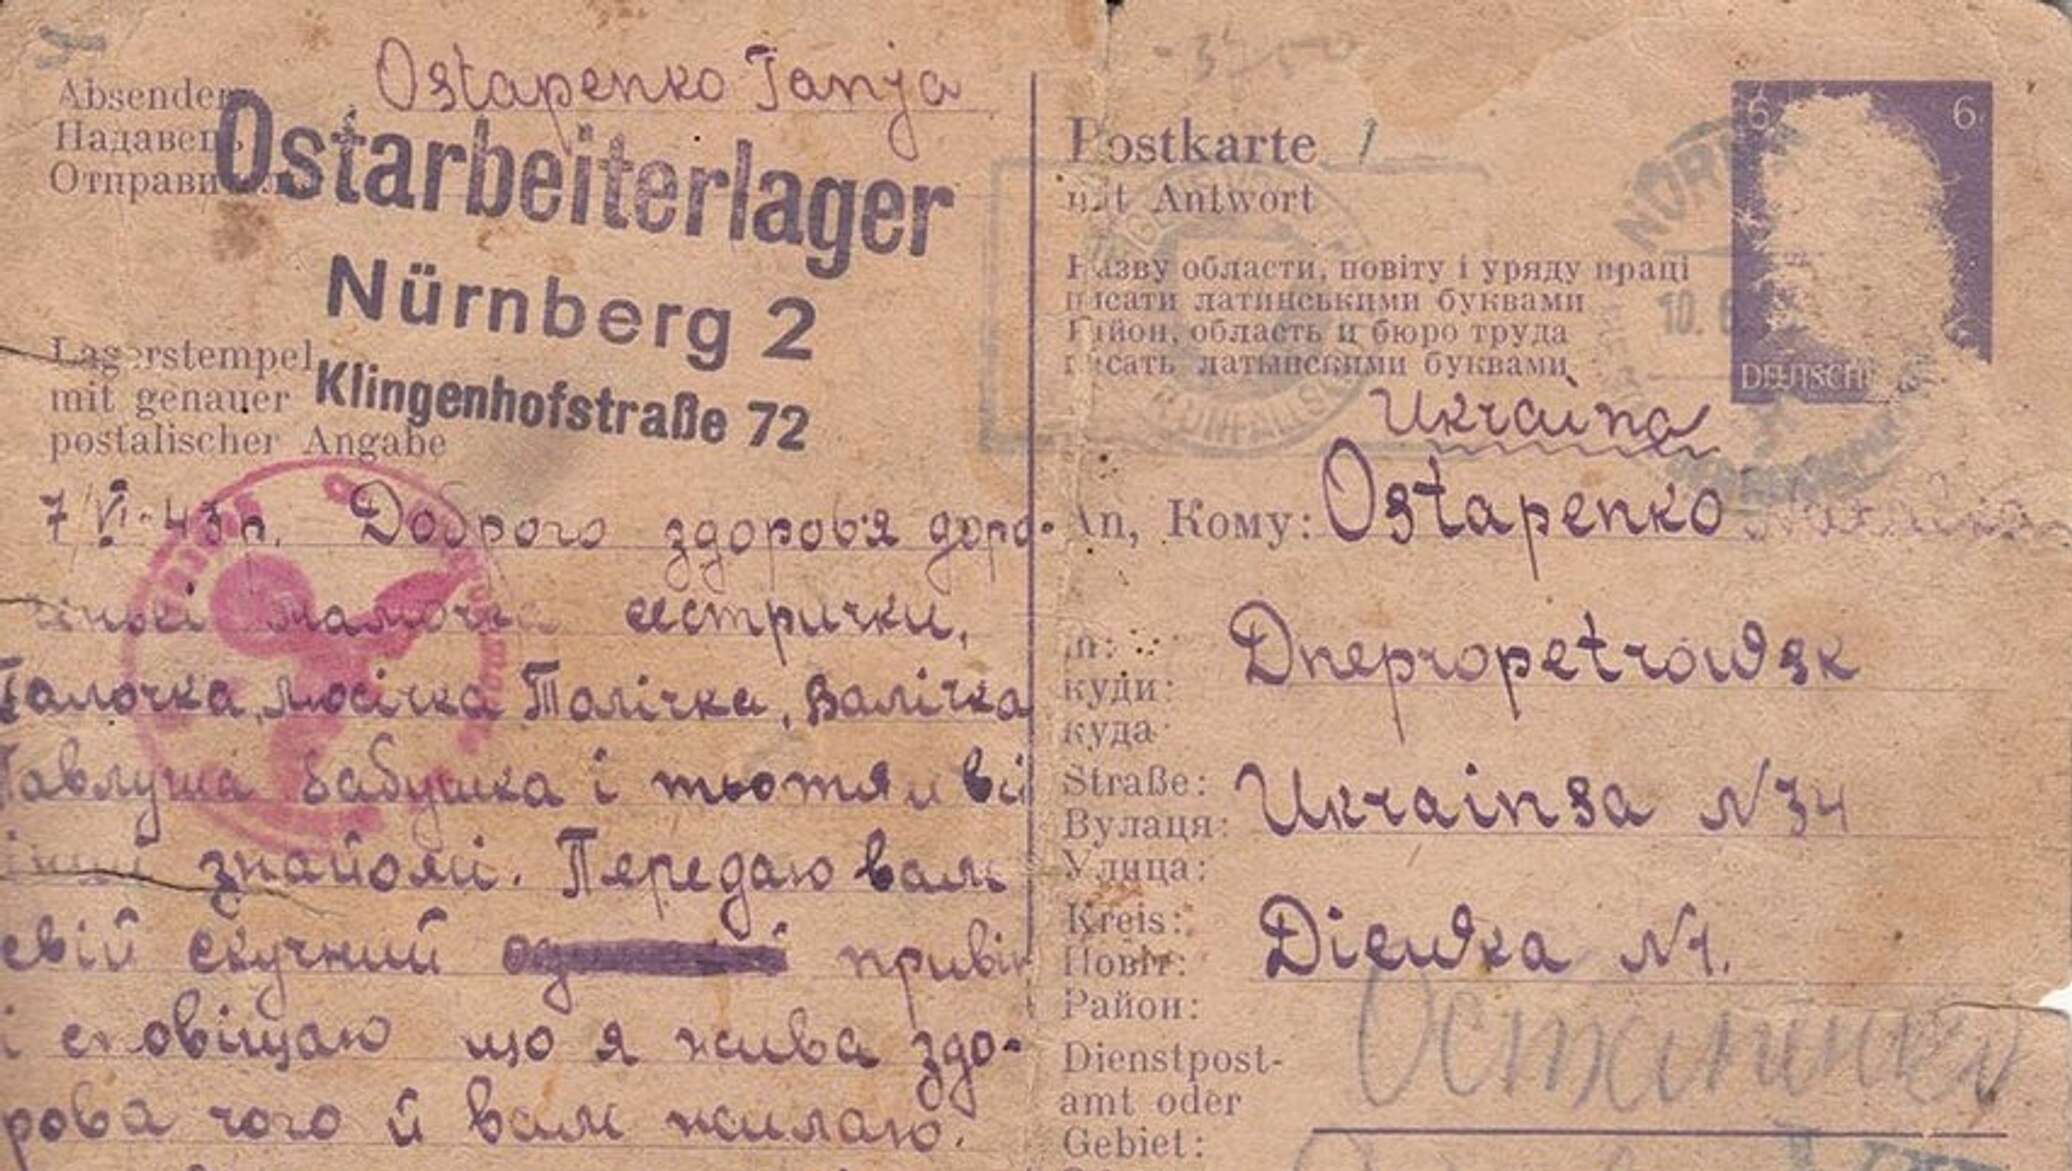 Absender
Надавець
Отправи
Ostapenko Tanja
Ostarbeiterlager
Nürnberg 2
Klingenhofstraße 72
Lagerstempel
mit genauer
postalischer Angabe
7/VI-43р. Доброго здоров'я доро-
мамочка сестрички,
Галочка, Люсічка Толічка, Валічка
Павлуша бабушка і тьотя и всі
знайомі. Передаю вам
свій скучний привіт
і сповіщаю що я жива здо-
рова чого й вам жилаю.
Postkarte 1
mit Antwort
Назву области, повіту і уряду праці
писати латинськими буквами
Район, область и бюро труда
писать латынскими буквами
6 6
DEUTSCH
10. 6
Ukraina
An, Кому: Ostapenko
In: Dnepropetrowsk
куди:
куда
Straße: Ukrainsa N 34
Вулаця:
Улица:
Kreis: Diewka N1.
Повіт:
Район:
Dienstpost-
amt oder
Gebiet: